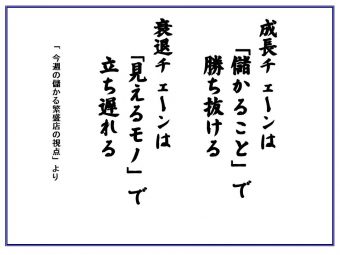 成長チェーンは
「儲かること」で
勝ち抜ける
衰退チェーンは
「見えるモノ」で
立ち遅れる
「今週の儲かる繁盛店の視点」より